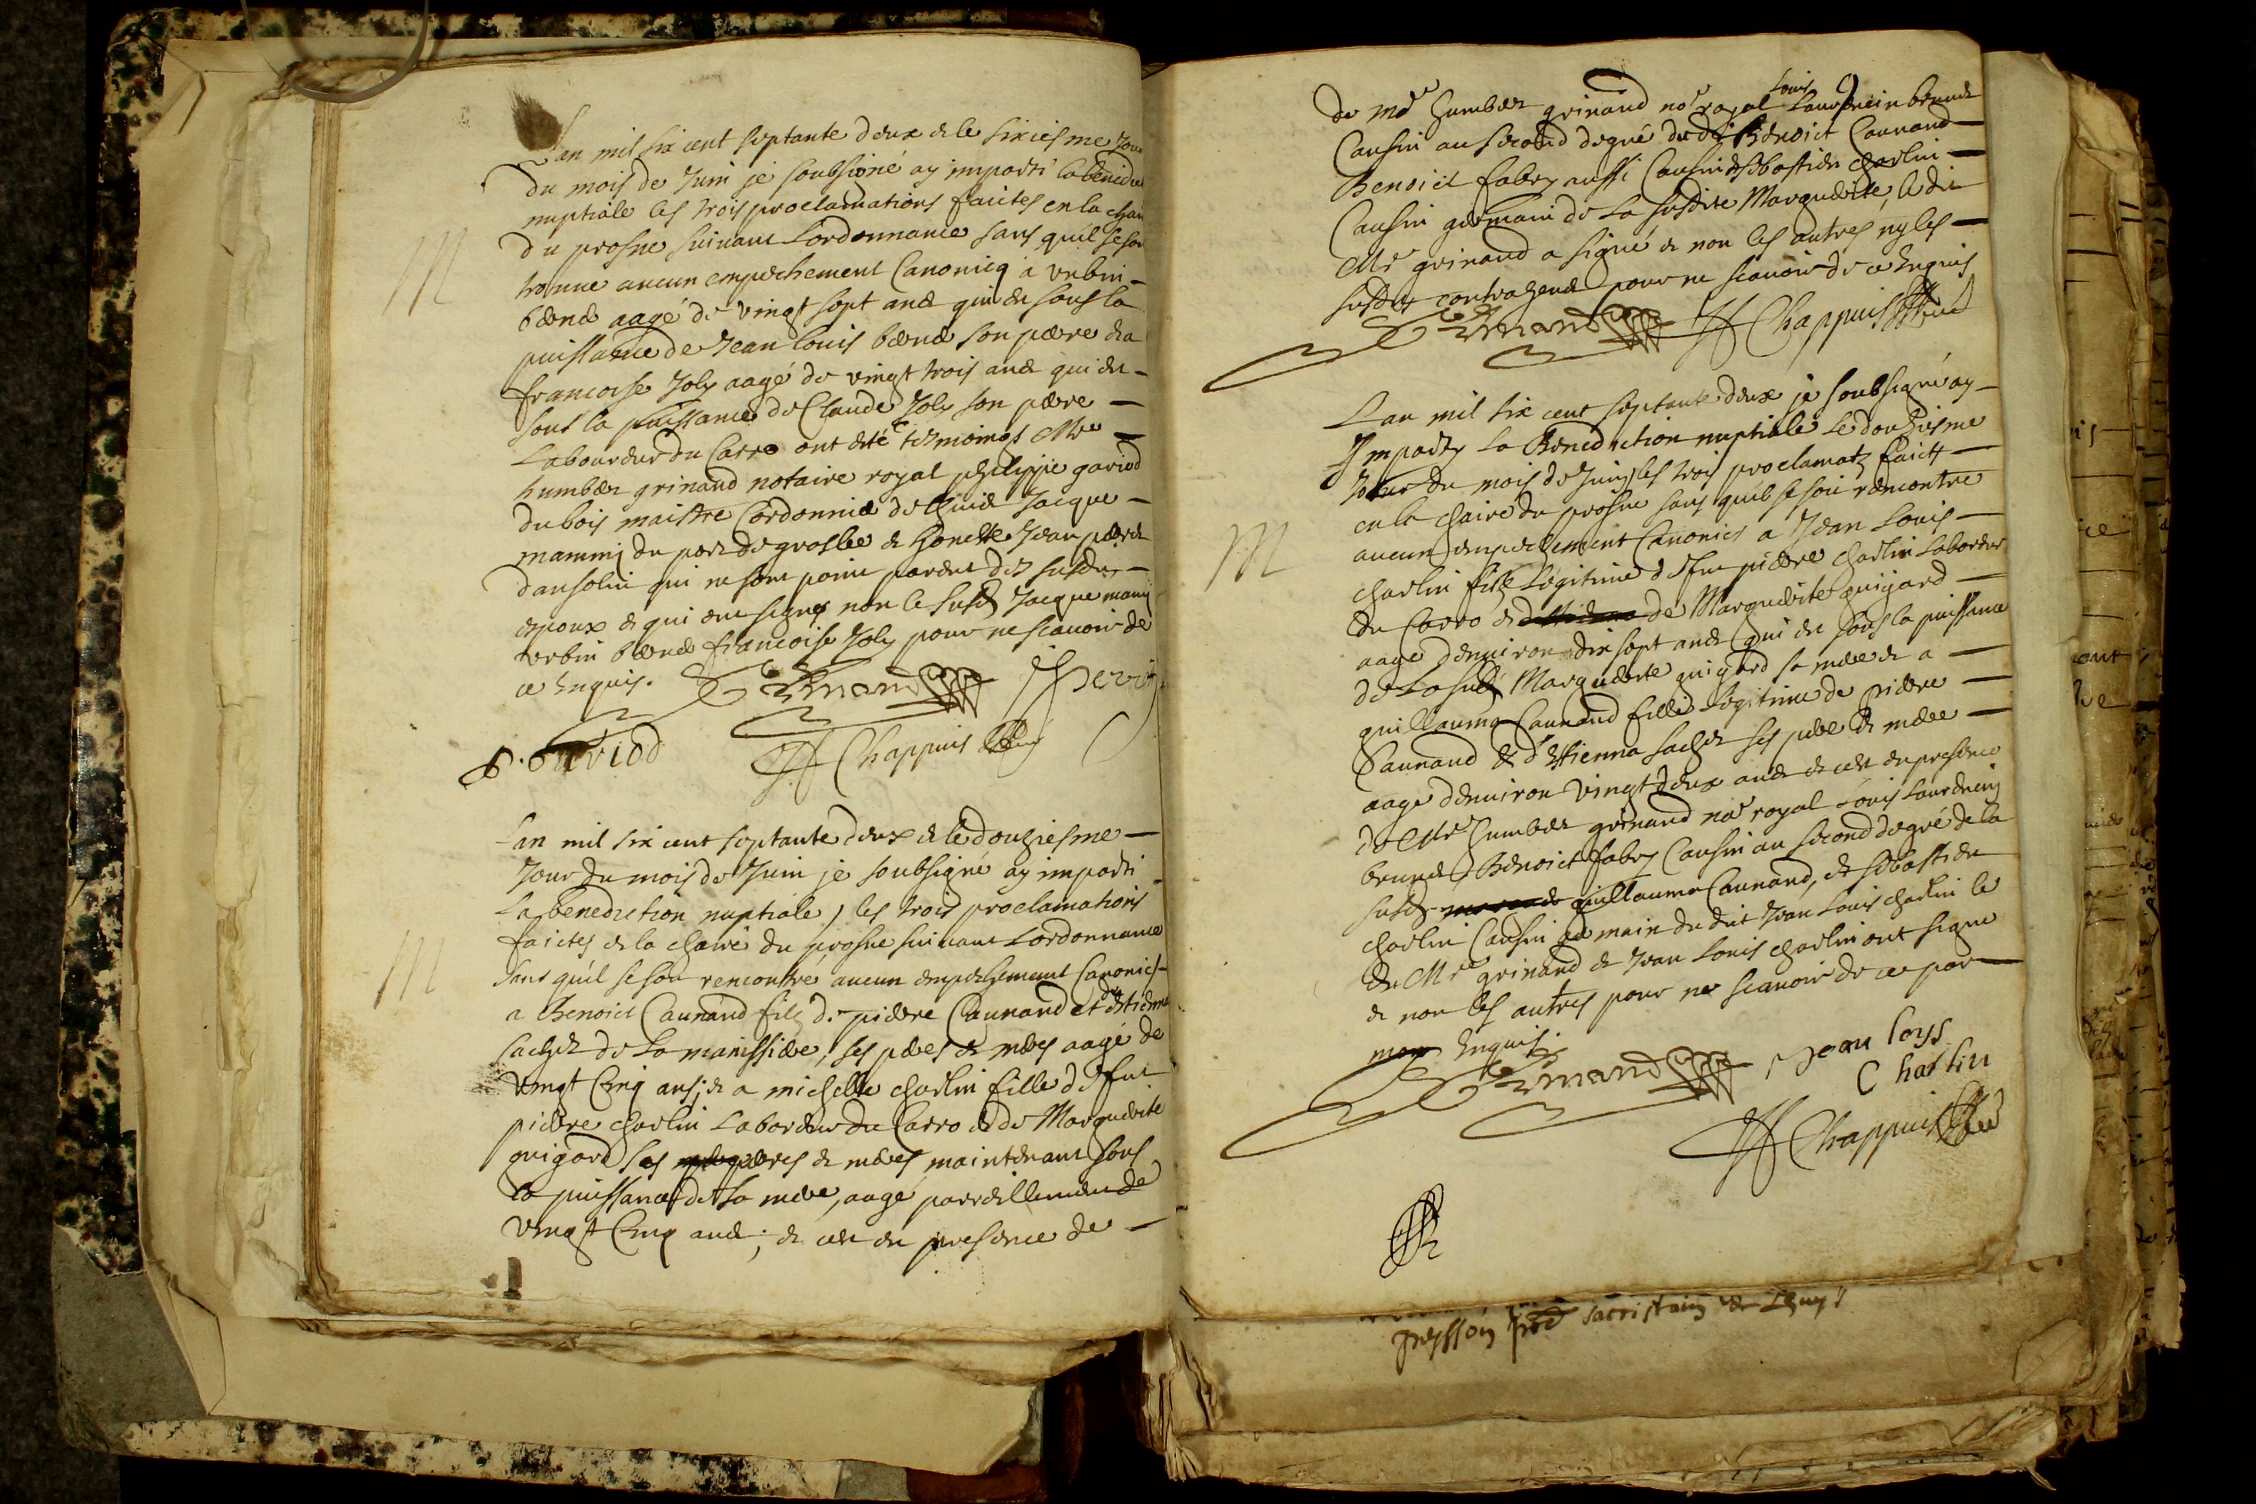 Lan mil six cent septante deux et le sixiesme Jour
du mois de Juin je soubsigné ay imparti la benedic
nuptiale les trois proclamations faictes en la chair
du prosne suivant Lordonnance sans quil se soi
trouue aucun empechement Canonicq a vrbin
aagé de vingt sept ans qui est sous la
puissance de Jean louis son pere et a
francoise Joly aagé de vingt trois ans qui est
sous la puissance de Claude Joly son pere
Laboureur du Carro ont esté tesmoings Mre
humber grinand notaire royal philippe gariod
dubois maistre Cordonnier de Jacque
mammy du port de groslee et Jean
qui ne sont point parent des susdis
espoux et qui ont signes non le susd Jacque mamy
vrbin francoise Joly pour ne scauoir de
ce Enquis.
Grinand
P. Gariod
Chappuis
M
Lan mil six cent septante deux et le douziesme
Jour du mois de Juin je soubsigné ay imparti
La benediction nuptiale, les trois proclamations
faictes en la chaire du prosne suivant Lordonnance
sans quil se soit rencontre aucun empechement Canonicq
a Benoict Caunand filz de pierre Caunand et destienne
sachet de La manissiere, ses peres et meres aagé de
vingt Cinq ans; et a michelle charlin fille de fut
pierre charlin Laboreur du Carro et de Marguerite
guigard ses peres et meres, maintenant sous
la puissance de sa mere, aagé pareillement de
vingt Cinq ans; et ce en presence de
M
de Mre humber grinand nore royal Louis
Causin au second degré dudit Benoict Caunand
Benoict fabry aussi Causin et Sebastien charlin
Causin germain de La susdite Marguerite, le dit
Mre grinand a signé et non les autres ny les
susdits contrahens pour ne scauoir de ce Enquis
Grinand
Chappuis
Lan mil six cent septante deux je soubsigné ay
Imparty La Benediction nuptiale Le douziesme
Jour du mois de Juin, les trois proclamatz faicts
en la chaire du prosne sans quil se soit rencontre
aucun empechement Canonicq a Jean Louis
charlin filz Legitime de fut pierre charlin Laboreur
du Carro et de Marguerite guigard
aagé denuiron dix sept ans qui est sous la puissance
de La susd Marguerite guigard sa mere et a
guillauma Caunand fille Legitime de pierre
Caunand et destienna sachet ses pere et mere
aagé denuiron vingt deux ans et ce en presence
de Mre humber grinand nore royal Louis
Benoict fabry Causin au second degré de la
susd guillauma Caunand, et sebastien
charlin Causin germain du dit Jean Louis charlin le
dit Mre grinand et Jean Louis charlin ont signe
et non les autres pour ne scauoir de ce par
moy Enquis.
Grinand
Jean loys
Charlin
Chappuis
M
sacristain de